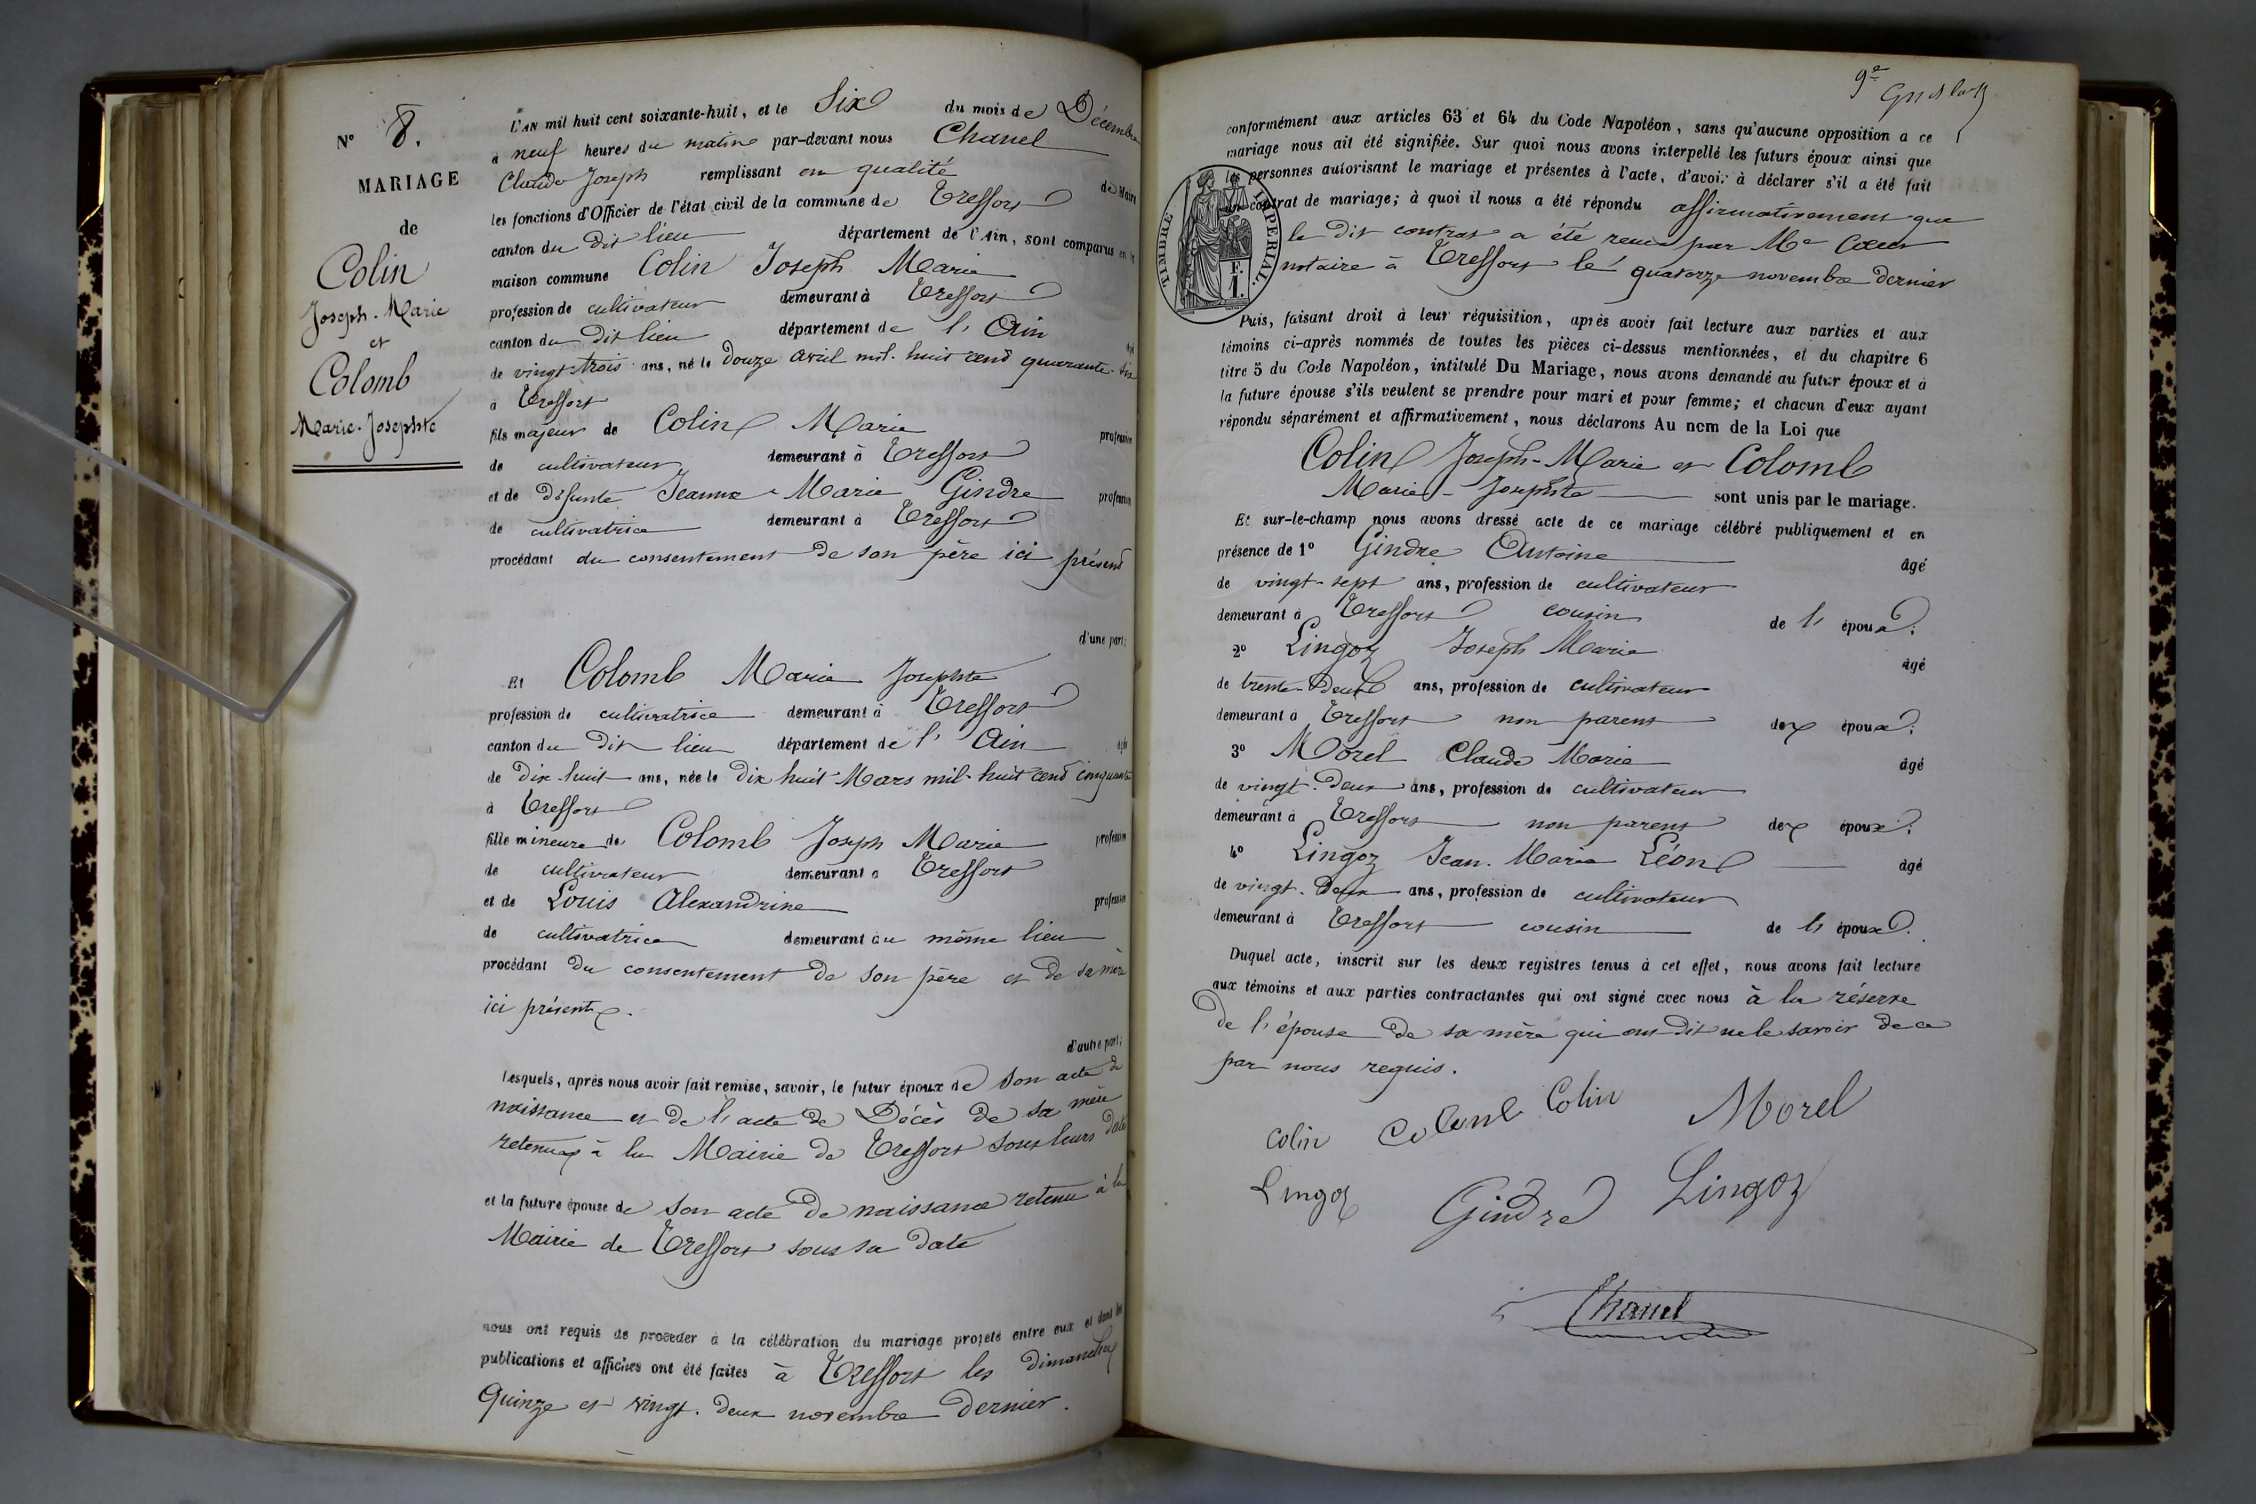 N° 8.
MARIAGE
de
Colin
Joseph-Marie
et
Colomb
Marie-Josephte
L'AN mil huit cent soixante-huit, et le Six du mois de Décembre
à neuf heures du matin par-devant nous Chanel
Claude Joseph remplissant en qualité de Maire
les fonctions d'Officier de l'état civil de la commune de Treffort
canton du dit lieu département de l'Ain, sont comparus en la
maison commune Colin Joseph Marie
profession de cultivateur demeurant à Treffort
canton du dit lieu département de l'Ain âgé
de vingt-trois ans, né le douze avril mil-huit cent quarante-
à Treffort
fils majeur de Colin Marie profession
de cultivateur demeurant à Treffort
et de défunte Jeanne-Marie Gindre profession
de cultivatrice demeurant à Treffort
procédant du consentement de son père ici présent
d'une part;
Et Colomb Marie Josephte
profession de cultivatrice demeurant à Treffort
canton du dit lieu département de l'Ain âgée
de dix-huit ans, née le dix huit Mars mil-huit cent cinquante
à Treffort
fille mineure de Colomb Joseph Marie profession
de cultivateur demeurant à Treffort
et de Louis Alexandrine profession
de cultivatrice demeurant au même lieu
procédant du consentement de son père et de sa mère
ici présents.
d'autre part;
Lesquels, après nous avoir fait remise, savoir, le futur époux de son acte de
naissance et de l'acte de Décès de sa mère
retenus à la Mairie de Treffort sous leurs dates
et la future épouse de son acte de naissance retenu à la
Mairie de Treffort sous sa date
nous ont requis de procéder à la célébration du mariage projeté entre eux et dont les
publications et affiches ont été faites à Treffort les dimanches
quinze et vingt-deux novembre dernier.
9e
conformément aux articles 63 et 64 du Code Napoléon, sans qu'aucune opposition a ce
mariage nous ait été signifiée. Sur quoi nous avons interpellé les futurs époux ainsi que
les personnes autorisant le mariage et présentes à l'acte, d'avoir à déclarer s'il a été fait
un contrat de mariage; à quoi il nous a été répondu affirmativement que
le dit contrat a été reçu par Me Cœur
notaire à Treffort le quatorze novembre dernier
TIMBRE IMPERIAL.
F.
1.
Puis, faisant droit à leur réquisition, après avoir fait lecture aux parties et aux
témoins ci-après nommés de toutes les pièces ci-dessus mentionnées, et du chapitre 6
titre 5 du Code Napoléon, intitulé Du Mariage, nous avons demandé au futur époux et à
la future épouse s'ils veulent se prendre pour mari et pour femme; et chacun d'eux ayant
répondu séparément et affirmativement, nous déclarons Au nom de la Loi que
Colin Joseph-Marie et Colomb
Marie-Josephte sont unis par le mariage.
Et sur-le-champ nous avons dressé acte de ce mariage célébré publiquement et en
présence de 1° Gindre Antoine âgé
de vingt-sept ans, profession de cultivateur
demeurant à Treffort cousin de l'époux;
2° Lingoz Joseph Marie âgé
de trente-deux ans, profession de cultivateur
demeurant à Treffort non parent des époux;
3° Morel Claude Marie âgé
de vingt-deux ans, profession de cultivateur
demeurant à Treffort non parent des époux;
4° Lingoz Jean-Marie Léon âgé
de vingt-deux ans, profession de cultivateur
demeurant à Treffort cousin de l'époux.
Duquel acte, inscrit sur les deux registres tenus à cet effet, nous avons fait lecture
aux témoins et aux parties contractantes qui ont signé avec nous à la réserve
de l'épouse de sa mère qui ont dit ne le savoir de ce
par nous requis.
Colin Colomb Colin Morel
Lingoz Gindre Lingoz
Chanel